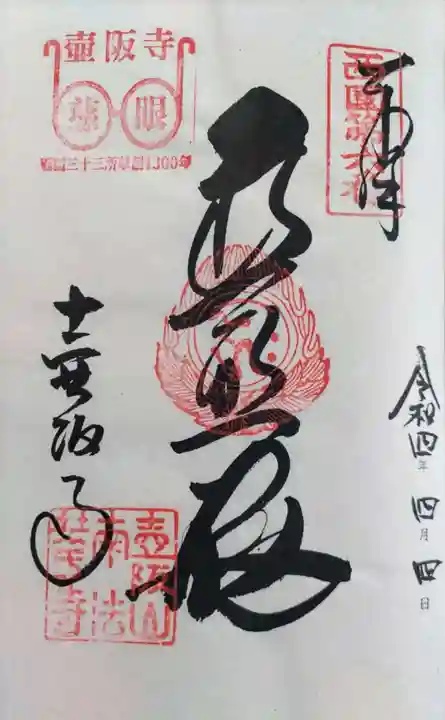 奉拝
西國第六番
令和四年四月四日
普照殿
壺阪寺
慈眼
西国三十三所草創1300年
壺阪寺
壺阪山
南法
華寺